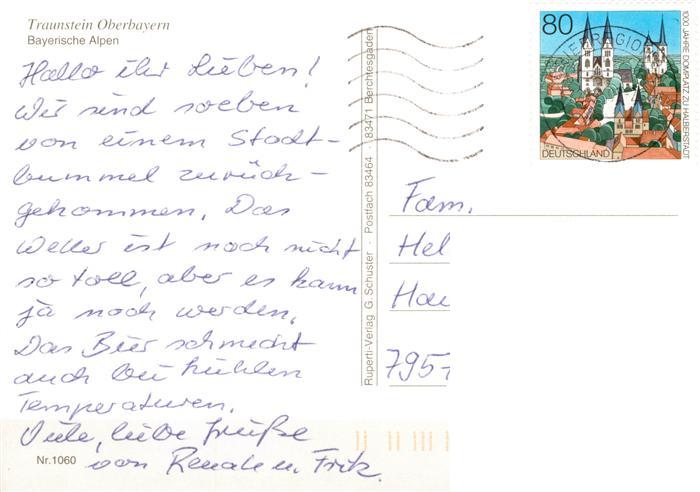 Traunstein Oberbayern
Bayerische Alpen
Hallo ihr Lieben!
Wir sind soeben
von einem Stadt-
bummel zurück-
gekommen. Das
Wetter ist noch nicht
so toll, aber es kann
ja noch werden.
Das Bier schmeckt
auch bei kühlen
Temperaturen.
Viele, liebe Grüße
von Renate u. Fritz.
Nr.1060
Ruperti-Verlag G. Schuster · Postfach 83464 · 83471 Berchtesgaden
80
1000 JAHRE DOMPLATZ ZU HALBERSTADT
DEUTSCHLAND
Fam.
Hel
Hau
795